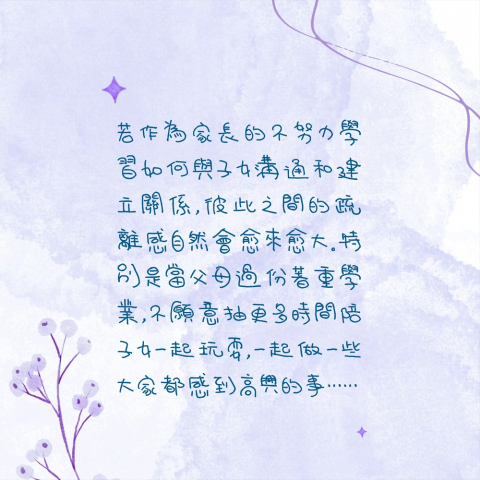 若作為家長的不努力學
習如何與子女溝通和建
立關係,彼此之間的疏
離感自然會愈來愈大。特
別是當父母過份著重學
業,不願意抽更多時間陪
子女一起玩耍,一起做一些
大家都感到高興的事……